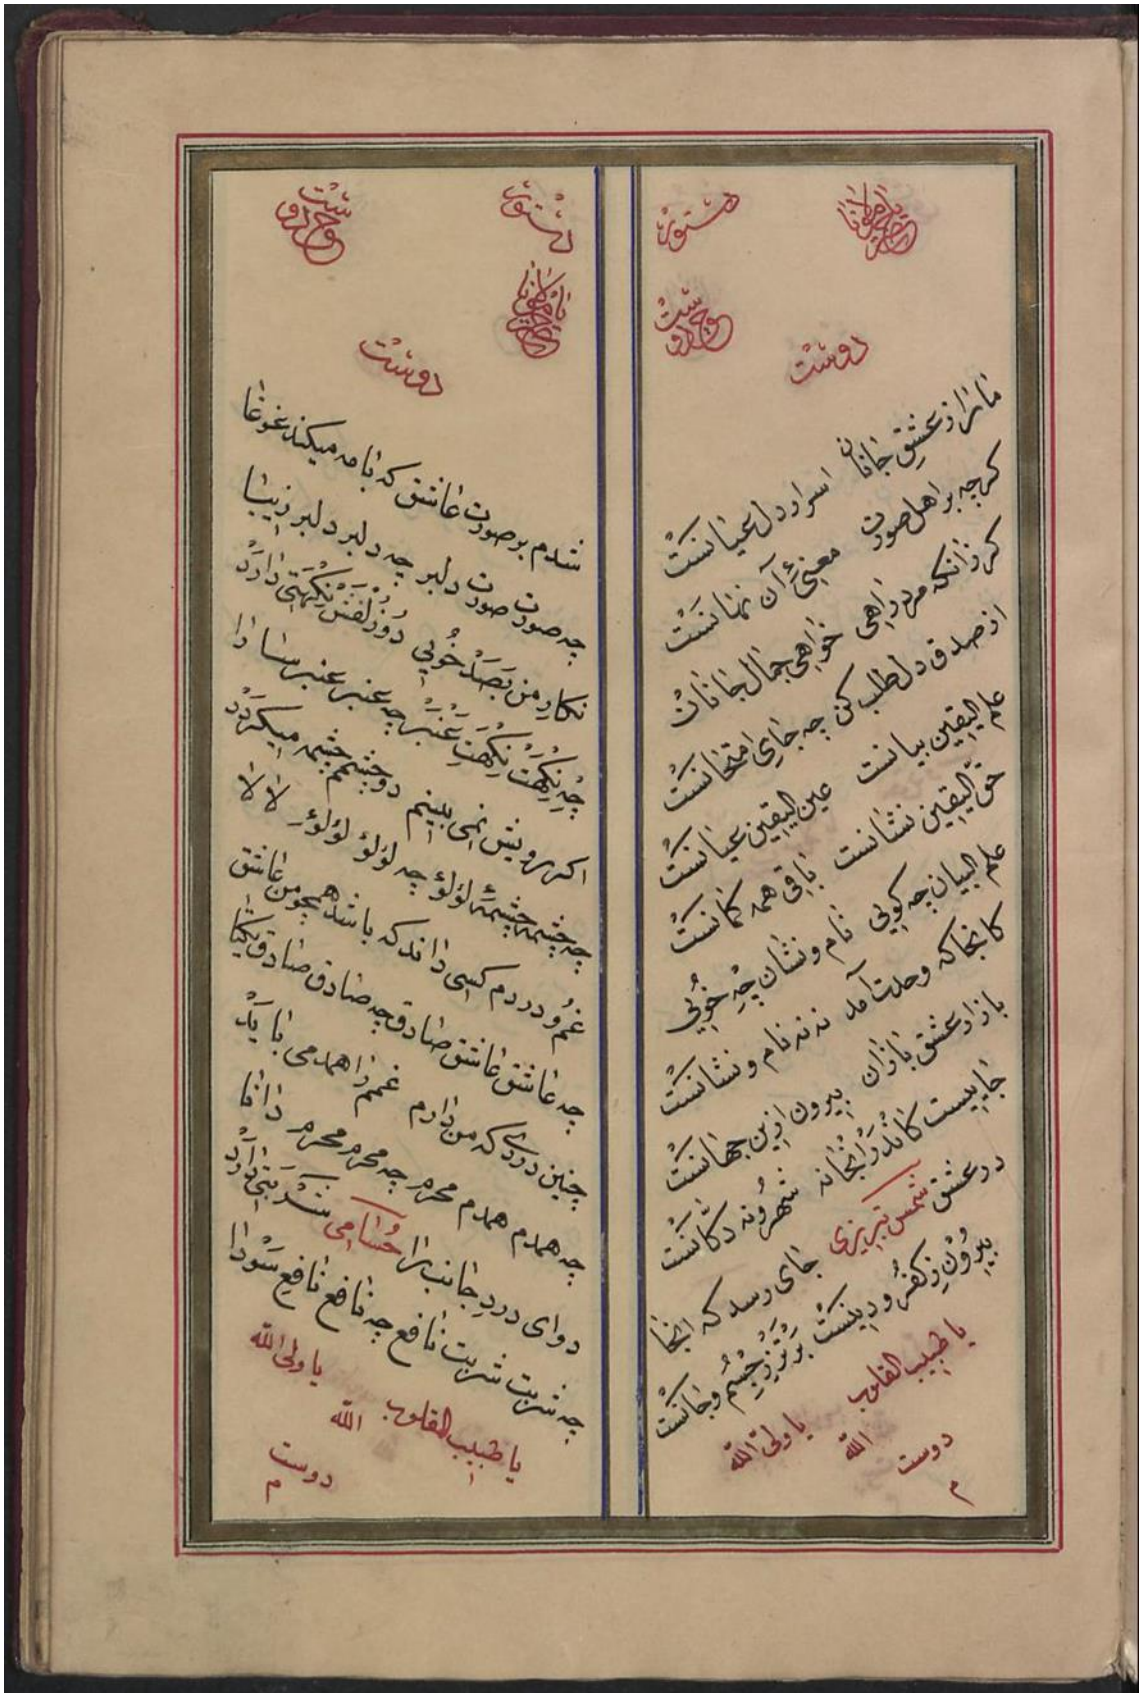 یا حضرت مولانا
دستور
وحدت
دوست
ما را ز عشق جانان اسرار دل عیانست
کرچه بر اهل صورت معنیء آن نهانست
کر زانکه مرد راهی خواهی جمال جانان
از صدق دل طلب کن چه جای امتحانست
علم الیقین بیانست عین الیقین عیانست
حق الیقین نشانست باقی همه کمانست
علم البیان چه کویی نام و نشان چه خوبی
کانجا که وحدت آمد نه نه نام و نشانست
بازار عشق بازان بیرون ازین جهانست
جاییست کاندر آنجا نه شهر و نه دکانست
در عشق شمس تبریزی جای رسد که اینجا
بیرون ز کفر و دینست برتر ز جسم و جانست
یا طبیب القلوب
یا ولی الله
الله
دوست
م
دستور
یا حضرت مولانا
دوست
شدم بر صورت عاشق که با مه میکند غوغا
چه صورت صورت دلبر چه دلبر دلبر زیبا
نکار من بصد خوبی دو زلفش نکهتی دارد
چه نکهت نکهت عنبر چه عنبر عنبر سارا
اکر رویش نمی بینم دو چشمم چشمه میکردد
چه چشمه چشمهٔ لؤلؤ چه لؤلؤ لؤلؤ لالا
غم و دردم کسی داند که باشد همچو من عاشق
چه عاشق عاشق صادق چه صادق صادق یکتا
چنین دردی که من دارم غمم را همدمی باید
چه همدم همدم محرم چه محرم محرم دانا
دوای درد جانب را حسامی شربتی دارد
چه شربت شربت نافع چه نافع نافع سودا
یا ولی الله
یا طبیب القلوب
الله
دوست
م